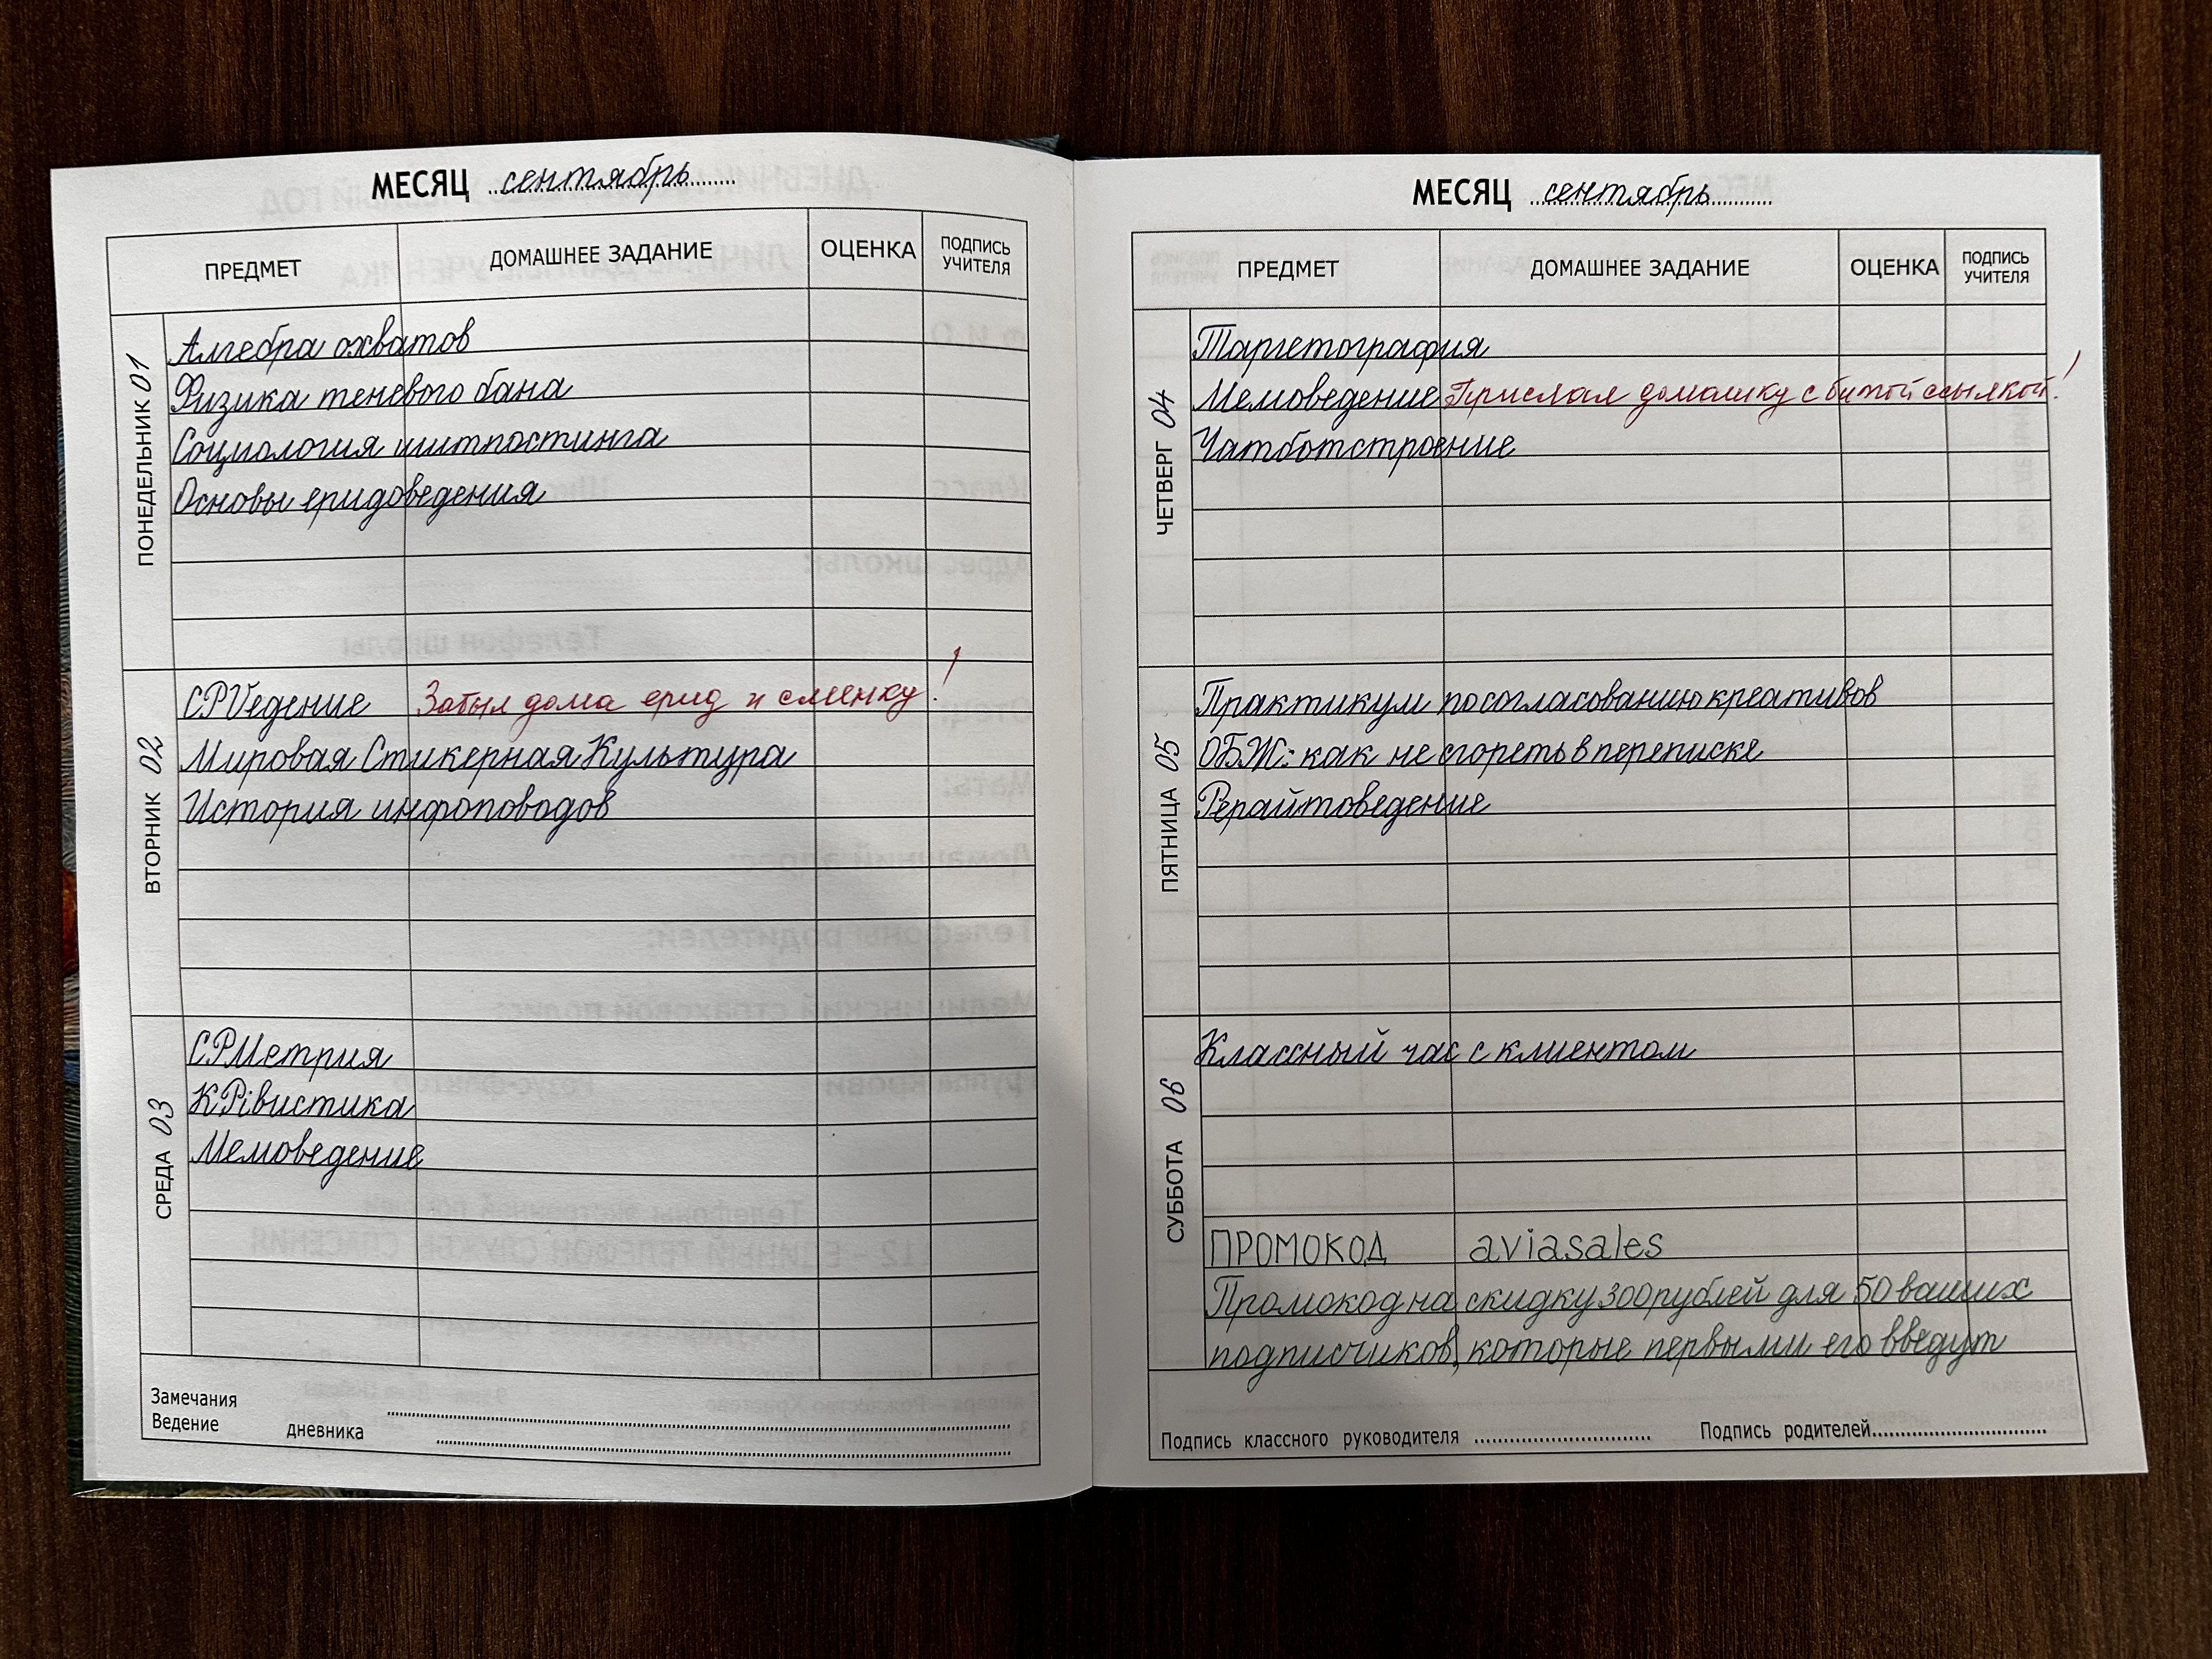 МЕСЯЦ сентябрь
ПРЕДМЕТ ДОМАШНЕЕ ЗАДАНИЕ ОЦЕНКА ПОДПИСЬ УЧИТЕЛЯ
ПОНЕДЕЛЬНИК 01
Алгебра охватов
Физика теневого бана
Социология шитпостинга
Основы еридоведения
ВТОРНИК 02
СРVедение Забыл дома ерид и сменку!
Мировая Стикерная Культура
История инфоповодов
СРЕДА 03
СРМетрия
КРiвистика
Мемоведение
Замечания
Ведение дневника
МЕСЯЦ сентябрь
ПРЕДМЕТ ДОМАШНЕЕ ЗАДАНИЕ ОЦЕНКА ПОДПИСЬ УЧИТЕЛЯ
ЧЕТВЕРГ 04
Таргетография
Мемоведение Прислал домашку с битой ссылкой!
Чатботстроение
ПЯТНИЦА 05
Практикум по согласованию креативов
ОБЖ: как не сгореть в переписке
Рерайтоведение
СУББОТА 06
Классный час с клиентом
ПРОМОКОД aviasales
Промокод на скидку 300 рублей для 50 ваших
подписчиков, которые первыми его введут
Подпись классного руководителя Подпись родителей